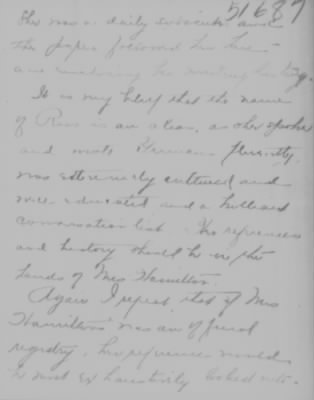 51687
She was a daily              and
the papers followed her
and
It is my belief that the name
of        is an alias, as she spoke
and wrote German fluently,
was extremely cultured and
well educated and a brilliant
conversationalist. The references
and history should be in the
hands of Mrs Hamilton.
Again I repeat, that if Mrs
Hamiltons' was an official
registry, her references would
be most exhaustively looked into.